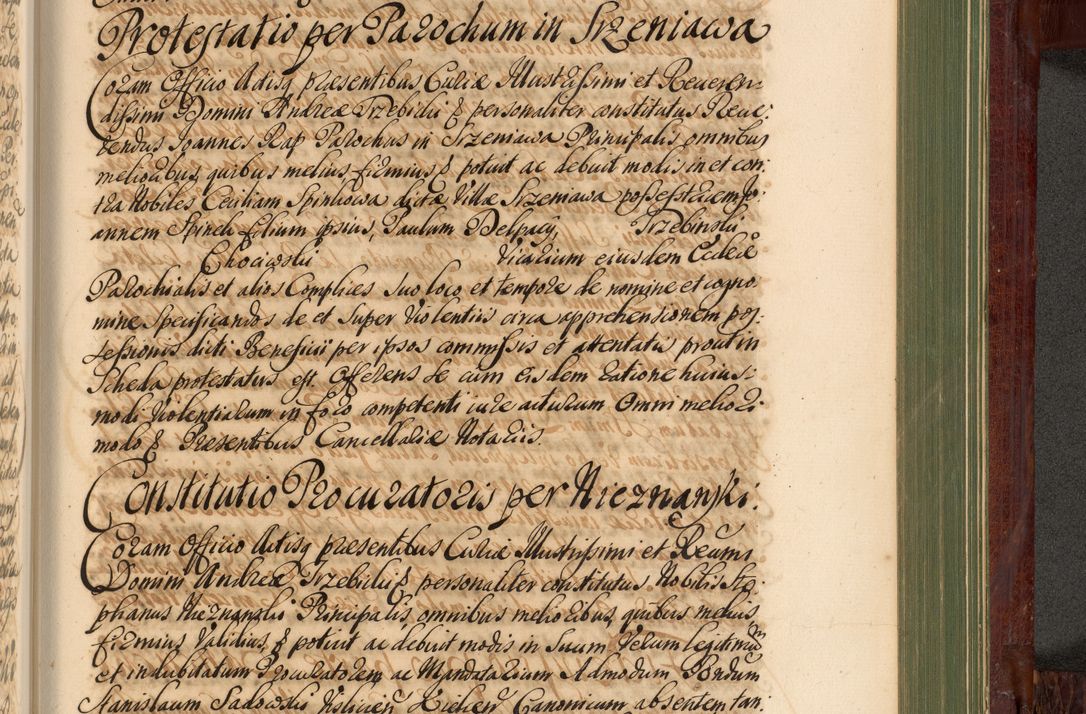 Protestatio per Parochum in Srzeniawa
Coram Officio Actisq præsentibus Curiæ Illustrissimi et Reueren-
dissimi Domini Andreæ Trzebicki & personaliter constitutus Reue-
rendus Joannes Rap Parochus in Srzeniawa Principalis omnibus
melioribus, quibus melius firmius & potuit ac debuit modis in et con-
tra Nobiles Ceciliam Spinkowa dictæ Villæ Srzeniawa possessricem Jo-
annem Spinek filium ipsius, Paulum Delpacy, Trzebinski
Chociwski Vicarium eiusdem Eccleæ
Parochialis et alios Complices suo loco et tempore de nomine et cogno
mine specificandos de et super Violentiis circa apprehensionem pos-
sessionis dicti Beneficii per ipsos commissis et attentatis prout in
Scheda protestatus est. Offerens se cum eisdem ratione huius-
modi Violentiarum in foro competenti iure acturum Omni meliori
modo & Præsentibus Cancellariæ Notariis.
Constitutio Procuratoris per Nieznanski.
Coram Officio Actisq præsentibus Curiæ Illustrissimi et Reumi
Domini Andreæ Trzebicki & personaliter constitutus Nobilis Ste-
phanus Nieznanski Principalis omnibus melioribus, quibus melius
firmius Validius, & potuit ac debuit modis in suum Verum legitimum
et indubitatum Procuratorem ac Mandatarium Admodum Rndum
Stanislaum Sadowski Canonicum absentem tan-